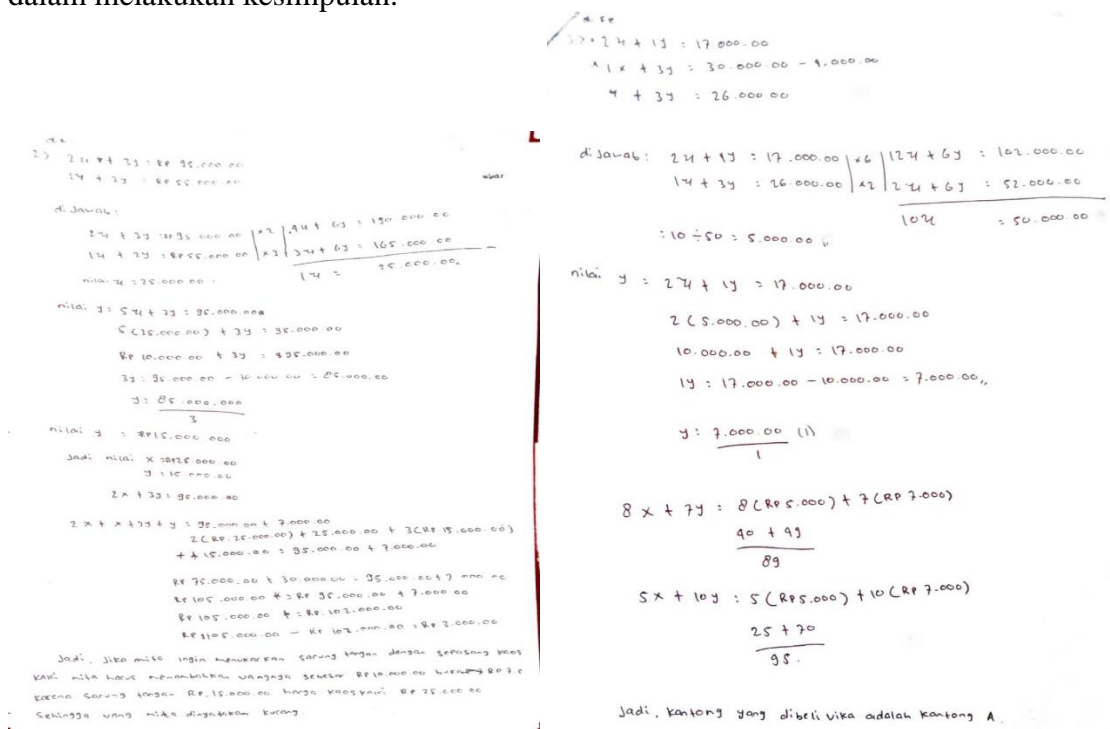 dalam melakukan kesimpulan.
2x + 3y : Rp 95.000.00
1x + 2y : Rp 55.000.00
di Jawab :
2x + 3y : Rp 95.000.00 | x2 | 4x + 6y : 190.000.00
1x + 2y : Rp 55.000.00 | x3 | 3x + 6y : 165.000.00 -
1x = 25.000.00,
nilai x : 25.000.00
nilai y : 5x + 3y : 95.000.00
5 (25.000.00) + 3y : 95.000.00
Rp 10.000.00 + 3y : 95.000.00
3y : 95.000.00 - 10.000.00 : 85.000.00
y : 85.000.000
3
nilai y : Rp15.000.000
Jadi nilai x : Rp25.000.00
y : 15.000.00
2x + 3y : 95.000.00
2x + x + 3y + y : 95.000.00 + 7.000.00
2 (Rp. 25.000.00) + 25.000.00 + 3 (Rp 15.000.00)
+ 15.000.00 : 95.000.00 + 7.000.00
Rp 75.000.00 + 30.000.00 : 95.000.00 + 7.000.00
Rp 105.000.00 : Rp 95.000.00 + 7.000.00
Rp 105.000.00 : Rp. 102.000.00
Rp 105.000.00 - Rp 102.000.00 : Rp 3.000.00
Jadi, Jika mita ingin menukarkan sarung tangan dengan sepasang kaos
kaki mita harus menambahkan uangnya sebesar Rp 10.000.00 bukan Rp 7.0
karena sarung tangan Rp. 15.000.00 harga kaos kaki Rp 25.000.00
Sehingga uang mita dinyatakan kurang
2x + 1y : 17.000.00
1x + 3y : 30.000.00 - 4.000.00
x + 3y : 26.000.00
di Jawab : 2x + 1y : 17.000.00 | x6 | 12x + 6y : 102.000.00
1x + 3y : 26.000.00 | x2 | 2x + 6y : 52.000.00
10x = 50.000.00
: 10 ÷ 50 : 5.000.00,,
nilai y : 2x + 1y = 17.000.00
2 (5.000.00) + 1y = 17.000.00
10.000.00 + 1y : 17.000.00
1y : 17.000.00 - 10.000.00 = 7.000.00,,
y : 7.000.00 (1)
1
8x + 7y : 8 (Rp 5.000) + 7 (Rp 7.000)
40 + 49
89
5x + 10y : 5 (Rp 5.000) + 10 (Rp 7.000)
25 + 70
95.
Jadi, kantong yang dibeli vika adalah kantong A.